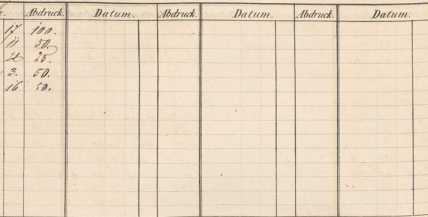 Abdruck. Datum. Abdruck. Datum. Abdruck. Datum.
17 100.
11 50.
2 25.
2. 50.
16 50.